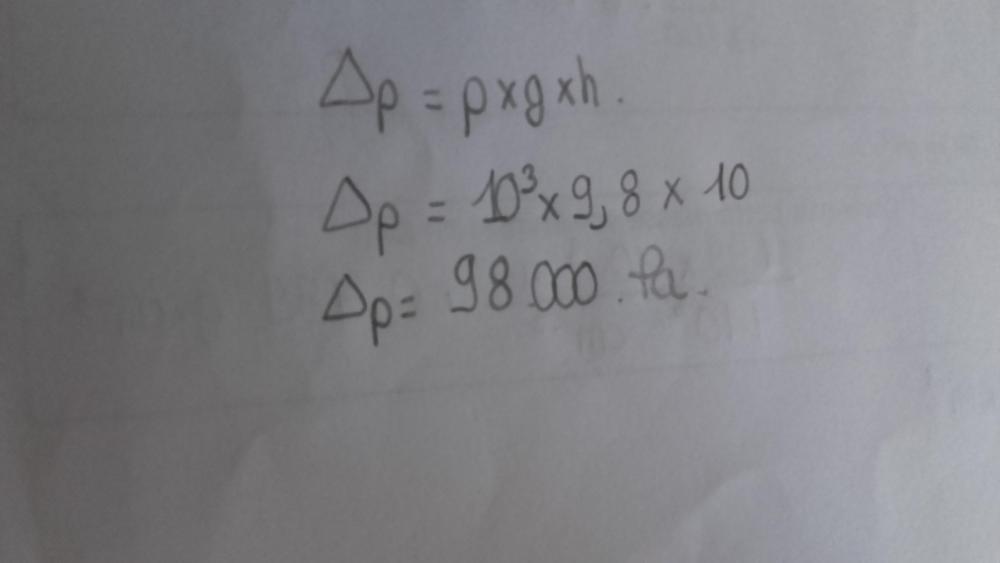 Δp = ρ×g×h.
Δp = 10³×9,8 × 10
Δp = 98 000. Pa.